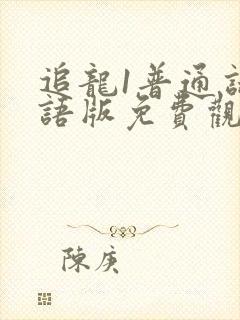 追龍1普通話
語版免費觀
陳庚